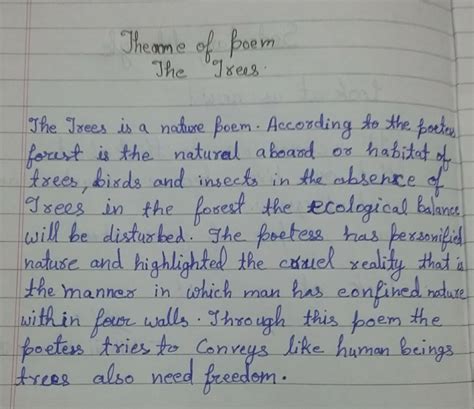 Theame of poem
The Trees.
The Trees is a nature Poem. According to the poetess
forest is the natural aboard or habitat of
trees, birds and insects in the absence of
Trees in the forest the ecological balance
will be disturbed. The poetess has personified
nature and highlighted the cruel reality that is
the manner in which man has confined nature
within four walls. Through this poem the
poetess tries to Conveys like human beings
trees also need freedom.